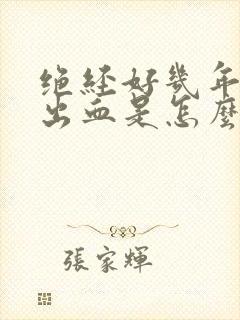 绝经好幾年
出血是怎麽
張家輝